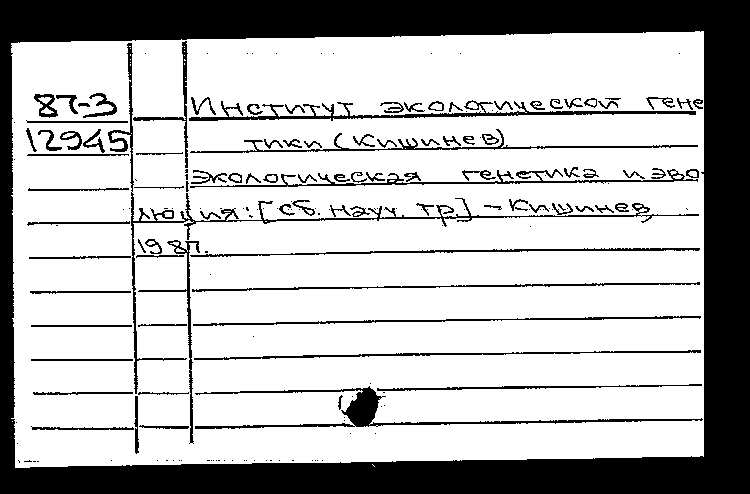 87-3 Институт экологической гене
12945 тики (Кишинев)
Экологическая генетика и эво-
люция: [Сб. науч. тр]. - Кишинев,
1987.